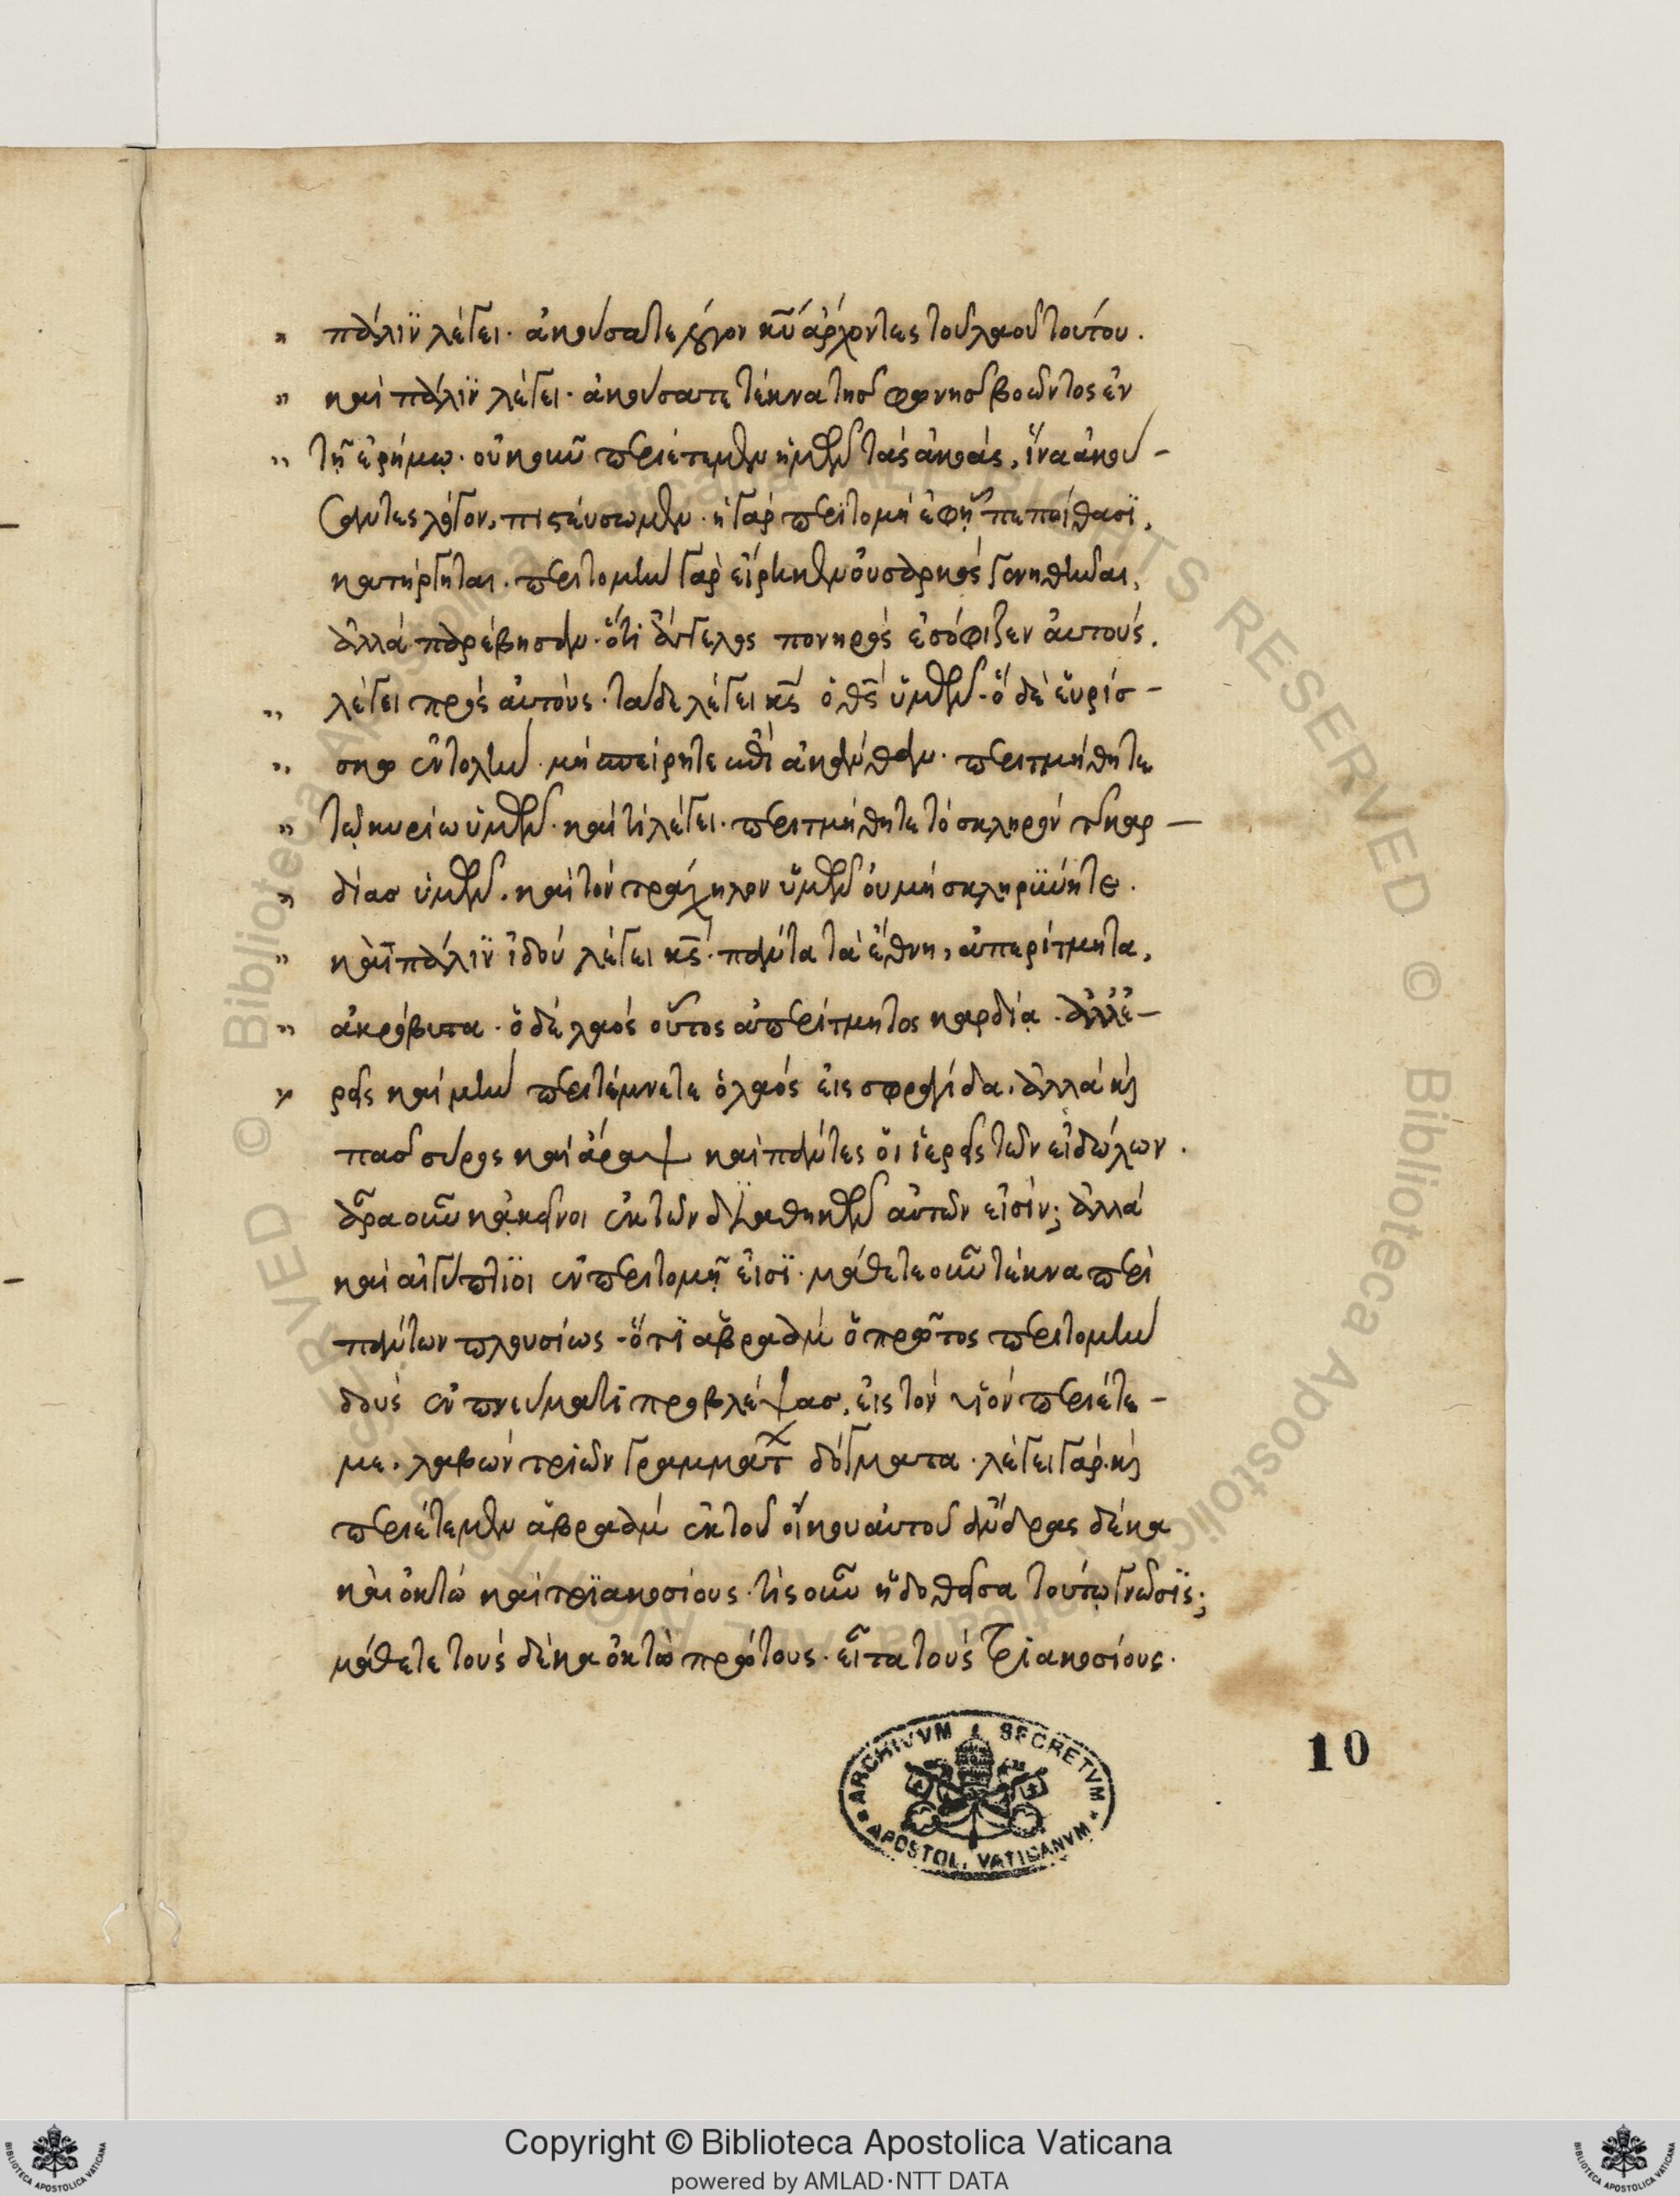 πάλιν λέγει· ἀκούσατε λόγον κυ̅ ἄρχοντες τοῦ λαοῦ τούτου.
καὶ πάλιν λέγει· ἀκούσατε τέκνα τῆς φωνῆς βοῶντος ἐν
τῇ ἐρήμω· οὐκοῦν περιέτεμεν ἡμῶν τὰς ἀκοάς, ἵνα ἀκού-
σαντες λόγον, πιστεύσωμεν· ἡ γὰρ περιτομή ἐφ' ᾗ πεποίθασϊ,
κατήργηται. περιτομὴν γὰρ εἴρηκεν οὐ σαρκός γενηθῆναι,
ἀλλά παρέβησαν· ὅτι ἄγγελος πονηρός ἐσόφιζεν αὐτούς.
λέγει πρὸς αὐτούς· τάδε λέγει κς̅ ὁ θς̅ ὑμῶν· ὅ δὲ εὑρίσ-
κω ἐντολήν· μή σπείρητε ἐπὶ ἀκάνθαν· περιτμήθητε
τῷ κυρίω ὑμῶν· καὶ τί λέγει· περιτμήθητε τό σκληρόν τῆς καρ-
δίας ὑμῶν. καὶ τόν τράχηλον ὑμῶν οὐ μή σκληρϋνῆτε.
καὶ πάλιν ἰδού λέγει κς̅· πάντα τὰ ἔθνη, ἀπερίτμητα,
ἀκρόβυτα· ὁ δὲ λαός οὗτος ἀπερίτμητος καρδίᾳ. ἀλλ' ἐ-
ρεῖς καὶ μὴν περιτέμνετε ὁ λαός εἰς σφραγίδα. ἀλλά καὶ
πᾶς σύρος καὶ ἄραψ καὶ πάντες οἱ ἱερεῖς τῶν εἰδώλων.
ἆρα οὖν κἀκεῖνοι ἐκ τῶν διαθηκῶν αὐτῶν εἰσίν; ἀλλά
καὶ αἰγύπτϊοι ἐν περιτομῇ εἰσϊ. μάθετε οὖν τέκνα περὶ
πάντων πλουσίως· ὅτϊ ἀβραάμ ὁ πρῶτος περιτομὴν
δούς ἐν πνεύματι προβλέψας, εἰς τόν υἱόν περιέτε-
με. λαβών τριῶν γραμμάτ δόγματα. λέγει γάρ. καὶ
περιέτεμεν ἀβραάμ ἐκ τοῦ οἴκου αὐτοῦ ἄνδρας δέκα
καὶ ὀκτώ καὶ τρϊακοσίους. τίς οὖν ἡ δοθεῖσα τούτῳ γνῶσϊς;
μάθετε τούς δέκα ὀκτὼ πρώτους. εἶτα τούς τριακοσίους.
ARCHIVVM SECRETVM
APOSTOL. VATICANVM
10
© Biblioteca Apostolica Vaticana ALL RIGHTS RESERVED
© Biblioteca Apostolica Vaticana ALL RIGHTS RESERVED
Copyright © Biblioteca Apostolica Vaticana
powered by AMLAD·NTT DATA
BIBLIOTECA APOSTOLICA VATICANA
BIBLIOTECA APOSTOLICA VATICANA